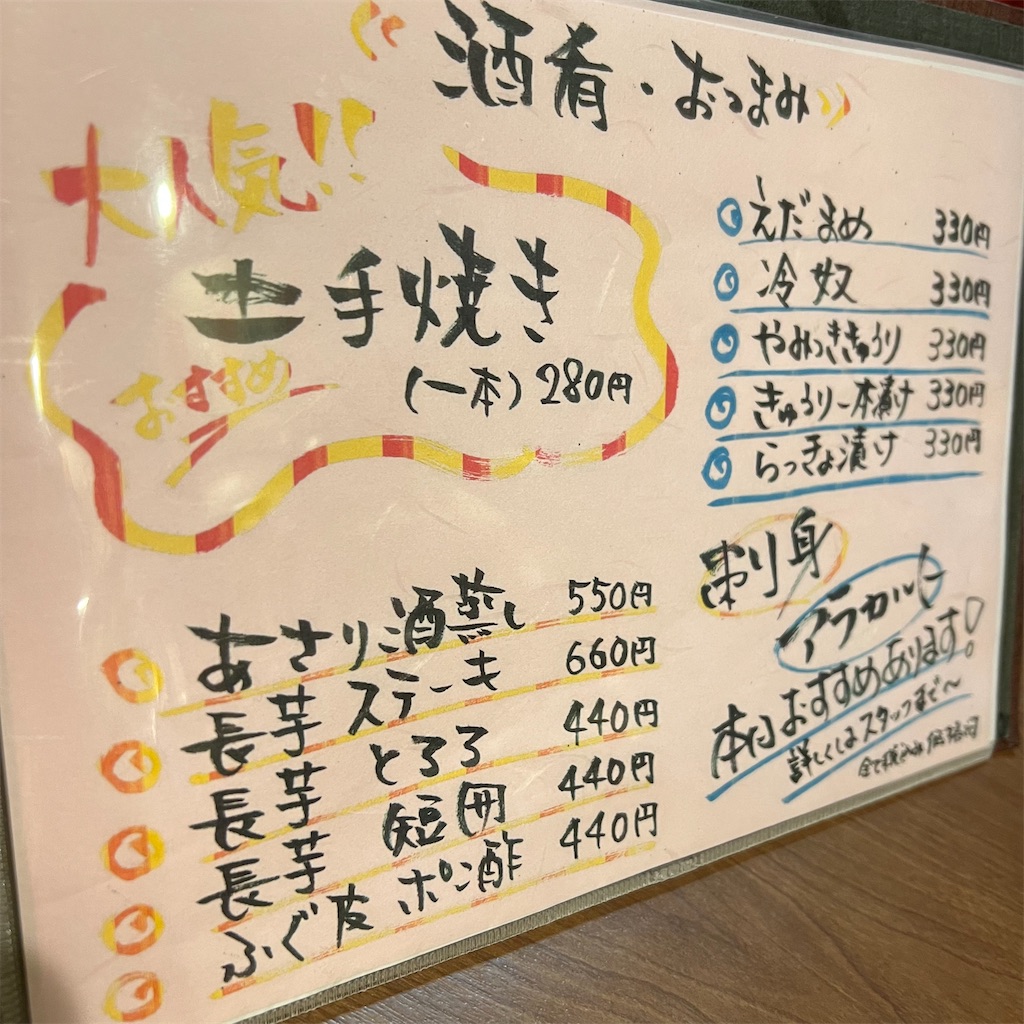 酒肴・おつまみ
大人気!!
土手焼き
おすすめ
(一本)280円
あさり酒蒸し 550円
長芋ステーキ 660円
長芋とろろ 440円
長芋短冊 440円
ふぐ皮ポン酢 440円
えだまめ 330円
冷奴 330円
やみつききゅうり 330円
きゅうり一本漬け 330円
らっきょ漬け 330円
刺身
アラカルト
本日おすすめあります!
詳しくはスタッフまで〜
全て税込み価格